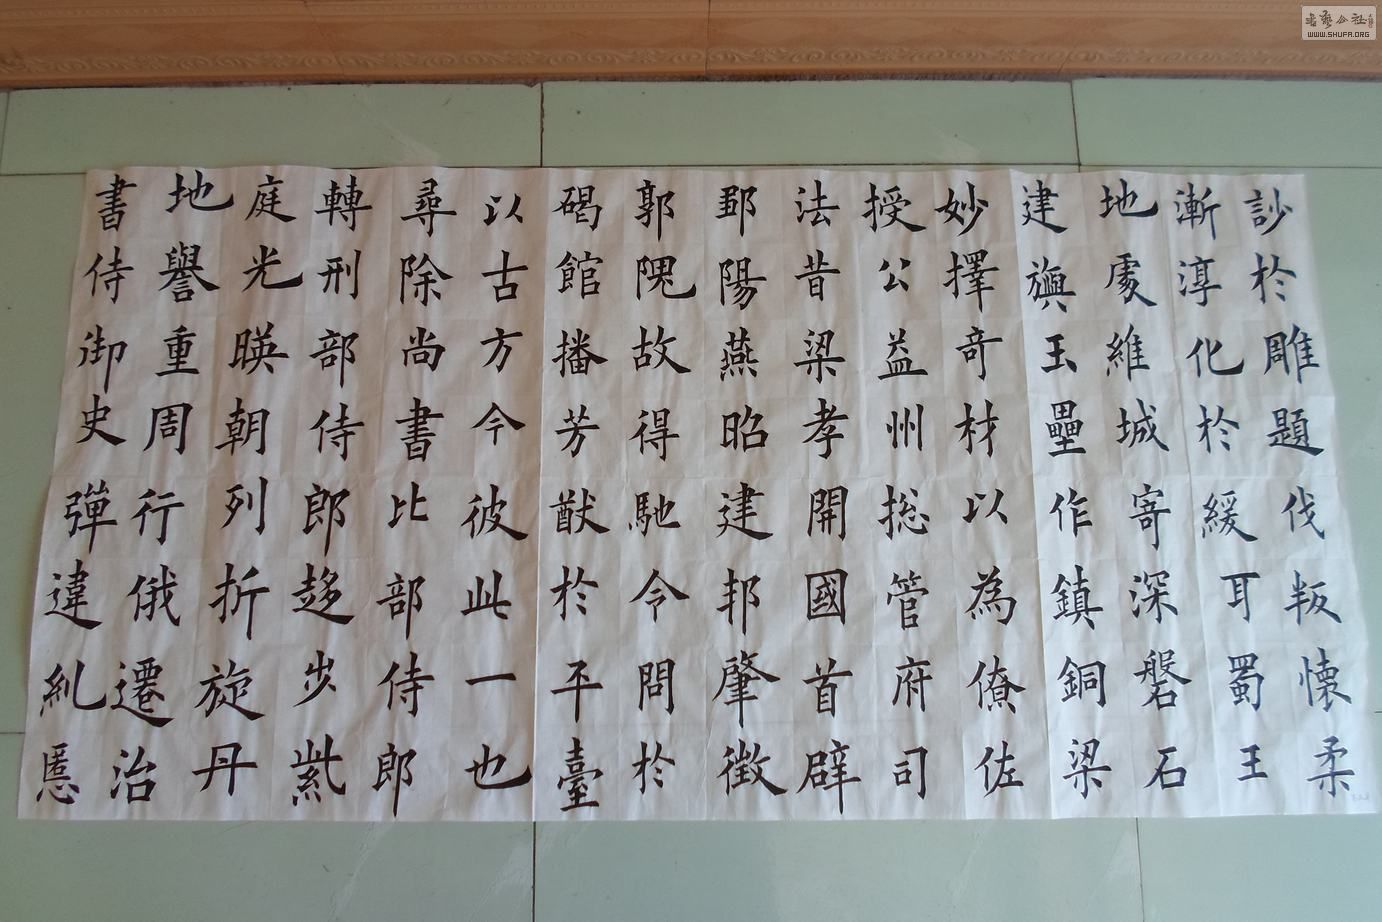 訬於雕題伐叛懷柔
漸淳化於緩耳蜀王
地處維城寄深磐石
建旟玉壘作鎮銅梁
妙擇奇材以為僚佐
授公益州総管府司
法昔梁孝開國首辟
鄒陽燕昭建邦肇徵
郭隗故得馳令問於
碣館播芳猷於平臺
以古方今彼此一也
尋除尚書比部侍郎
轉刑部侍郎趍步紫
庭光暎朝列折旋丹
地譽重周行俄遷治
書侍御史彈違糺慝
WWW.SHUFA.ORG